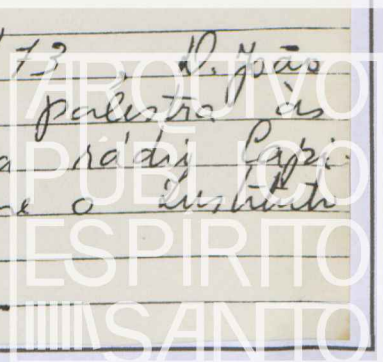 73, D. João
palestra às
a rádio Capi-
e o Instituto
ARQUIVO
PÚBLICO
ESPÍRITO
SANTO